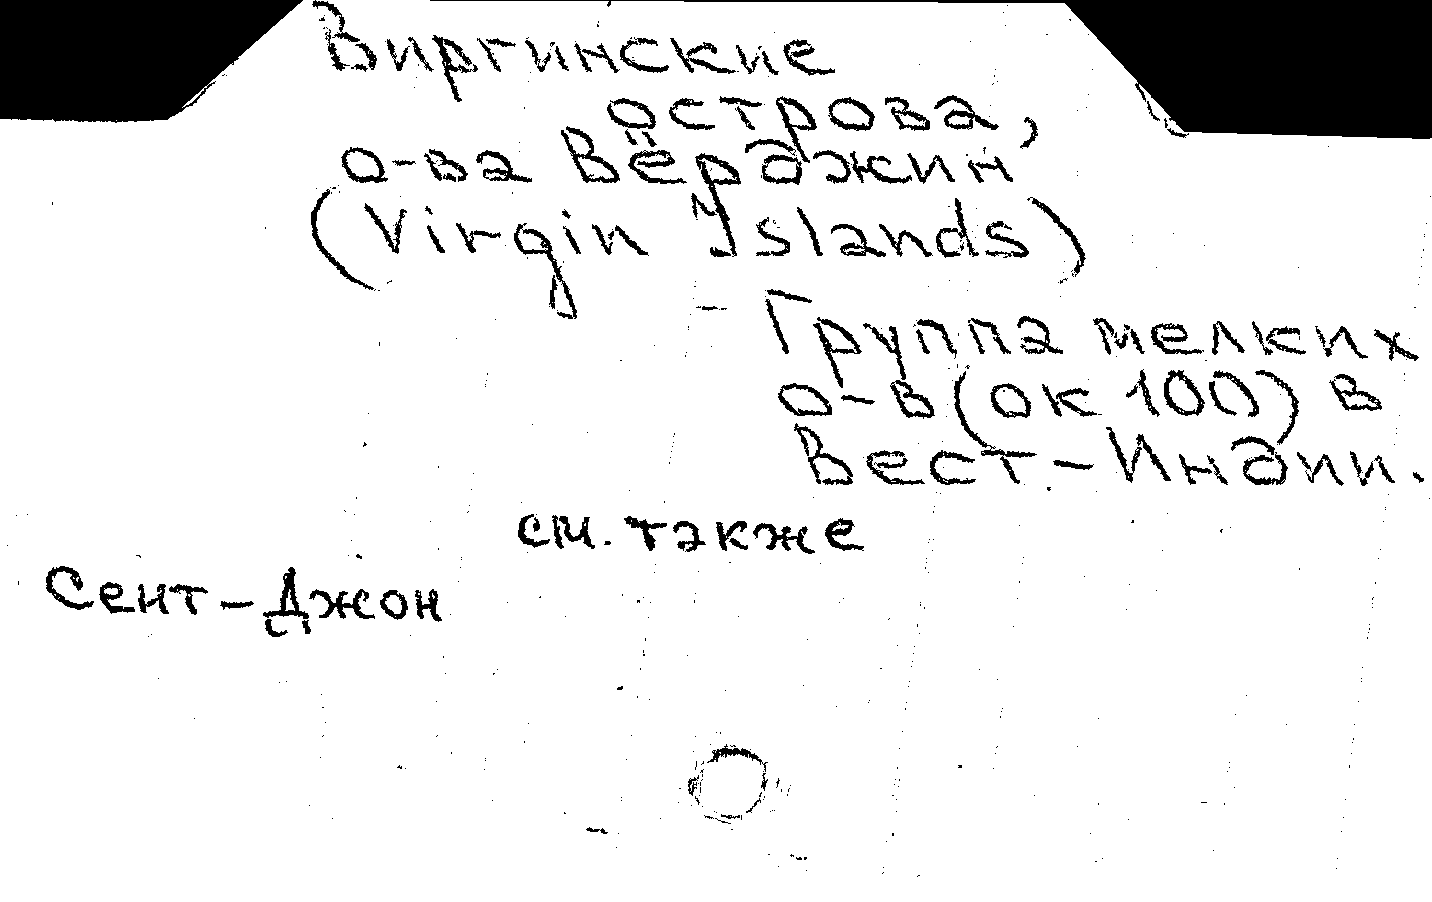 Виргинские
острова,
о-ва Вёрджин
(Virgin Islands)
- Группа мелких
о-в (ок 100) в
Вест-Индии.
см. также
Сент-Джон